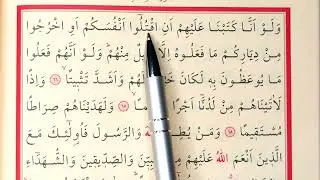 وَلَوْ اَنَّا كَتَبْنَا عَلَيْهِمْ اَنِ اقْتُلُوا اَنْفُسَكُمْ اَوِ اخْرُجُوا
مِنْ دِيَارِكُمْ مَا فَعَلُوهُ اِلَّا مِنْهُمْ وَلَوْ اَنَّهُمْ فَعَلُوا
مَا يُوعَظُونَ بِهِ لَكَانَ وَاَشَدَّ تَثْبِيتًا ﴿٦٦﴾ وَاِذًا
لَاٰتَيْنَاهُمْ مِنْ لَدُنَّا اَجْرًا ﴿٦٧﴾ وَلَهَدَيْنَاهُمْ صِرَاطًا
مُسْتَقِيمًا ﴿٦٨﴾ وَمَنْ يُطِعِ وَالرَّسُولَ فَاُولٰئِكَ مَعَ
الَّذِينَ اَنْعَمَ اللّٰهُ عَلَيْهِمْ مِنَ وَالصِّدِّيقِينَ وَالشُّهَدَاءِ